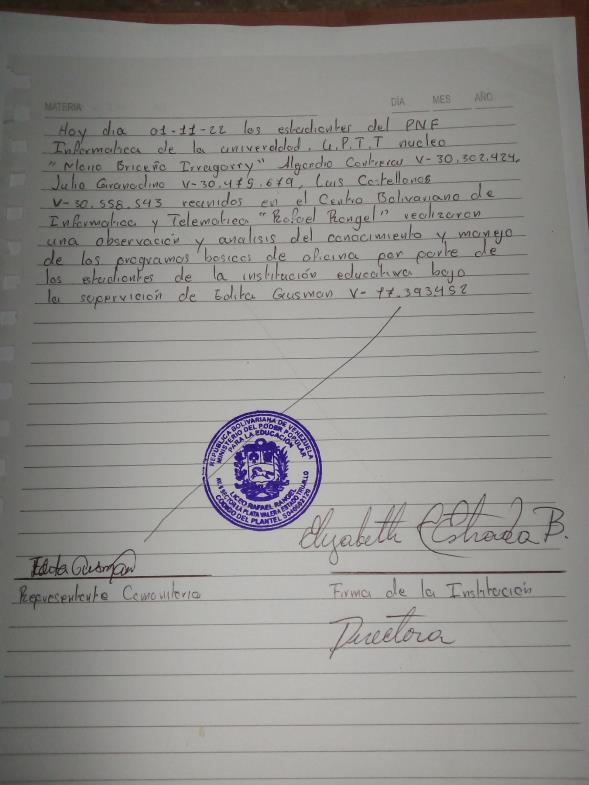 MATERIA
DÍA MES AÑO
Hoy dia 01-11-22 los estudiantes del PNF
Informatica de la univerdidad. U.P.T.T nucleo
"Mario Briceño Irragorry" Algerdio Contreras V-30.302.424,
Julio Granadino V-30.475.679, Luis Castellanos
V-30.558.543 reunidos en el Centro Bolivariano de
Informatica y Telematica "Rafael Rangel" realizaron
una observación y analisis del conocimiento y manejo
de los programas basicos de oficina por parte de
los estudiantes de la institución educativa bajo
la supervicion de Edita Gusman V-17.393.452
REPUBLICA BOLIVARIANA DE VENEZUELA
MINISTERIO DEL PODER POPULAR
PARA LA EDUCACIÓN
LICEO RAFAEL RANGEL
LA PLATA VALERA ESTADO TRUJILLO
CODIGO DEL PLANTEL
Elizabeth Estrada B.
Edita Gusman
Representante Comunitario
Firma de la Institución
Directora